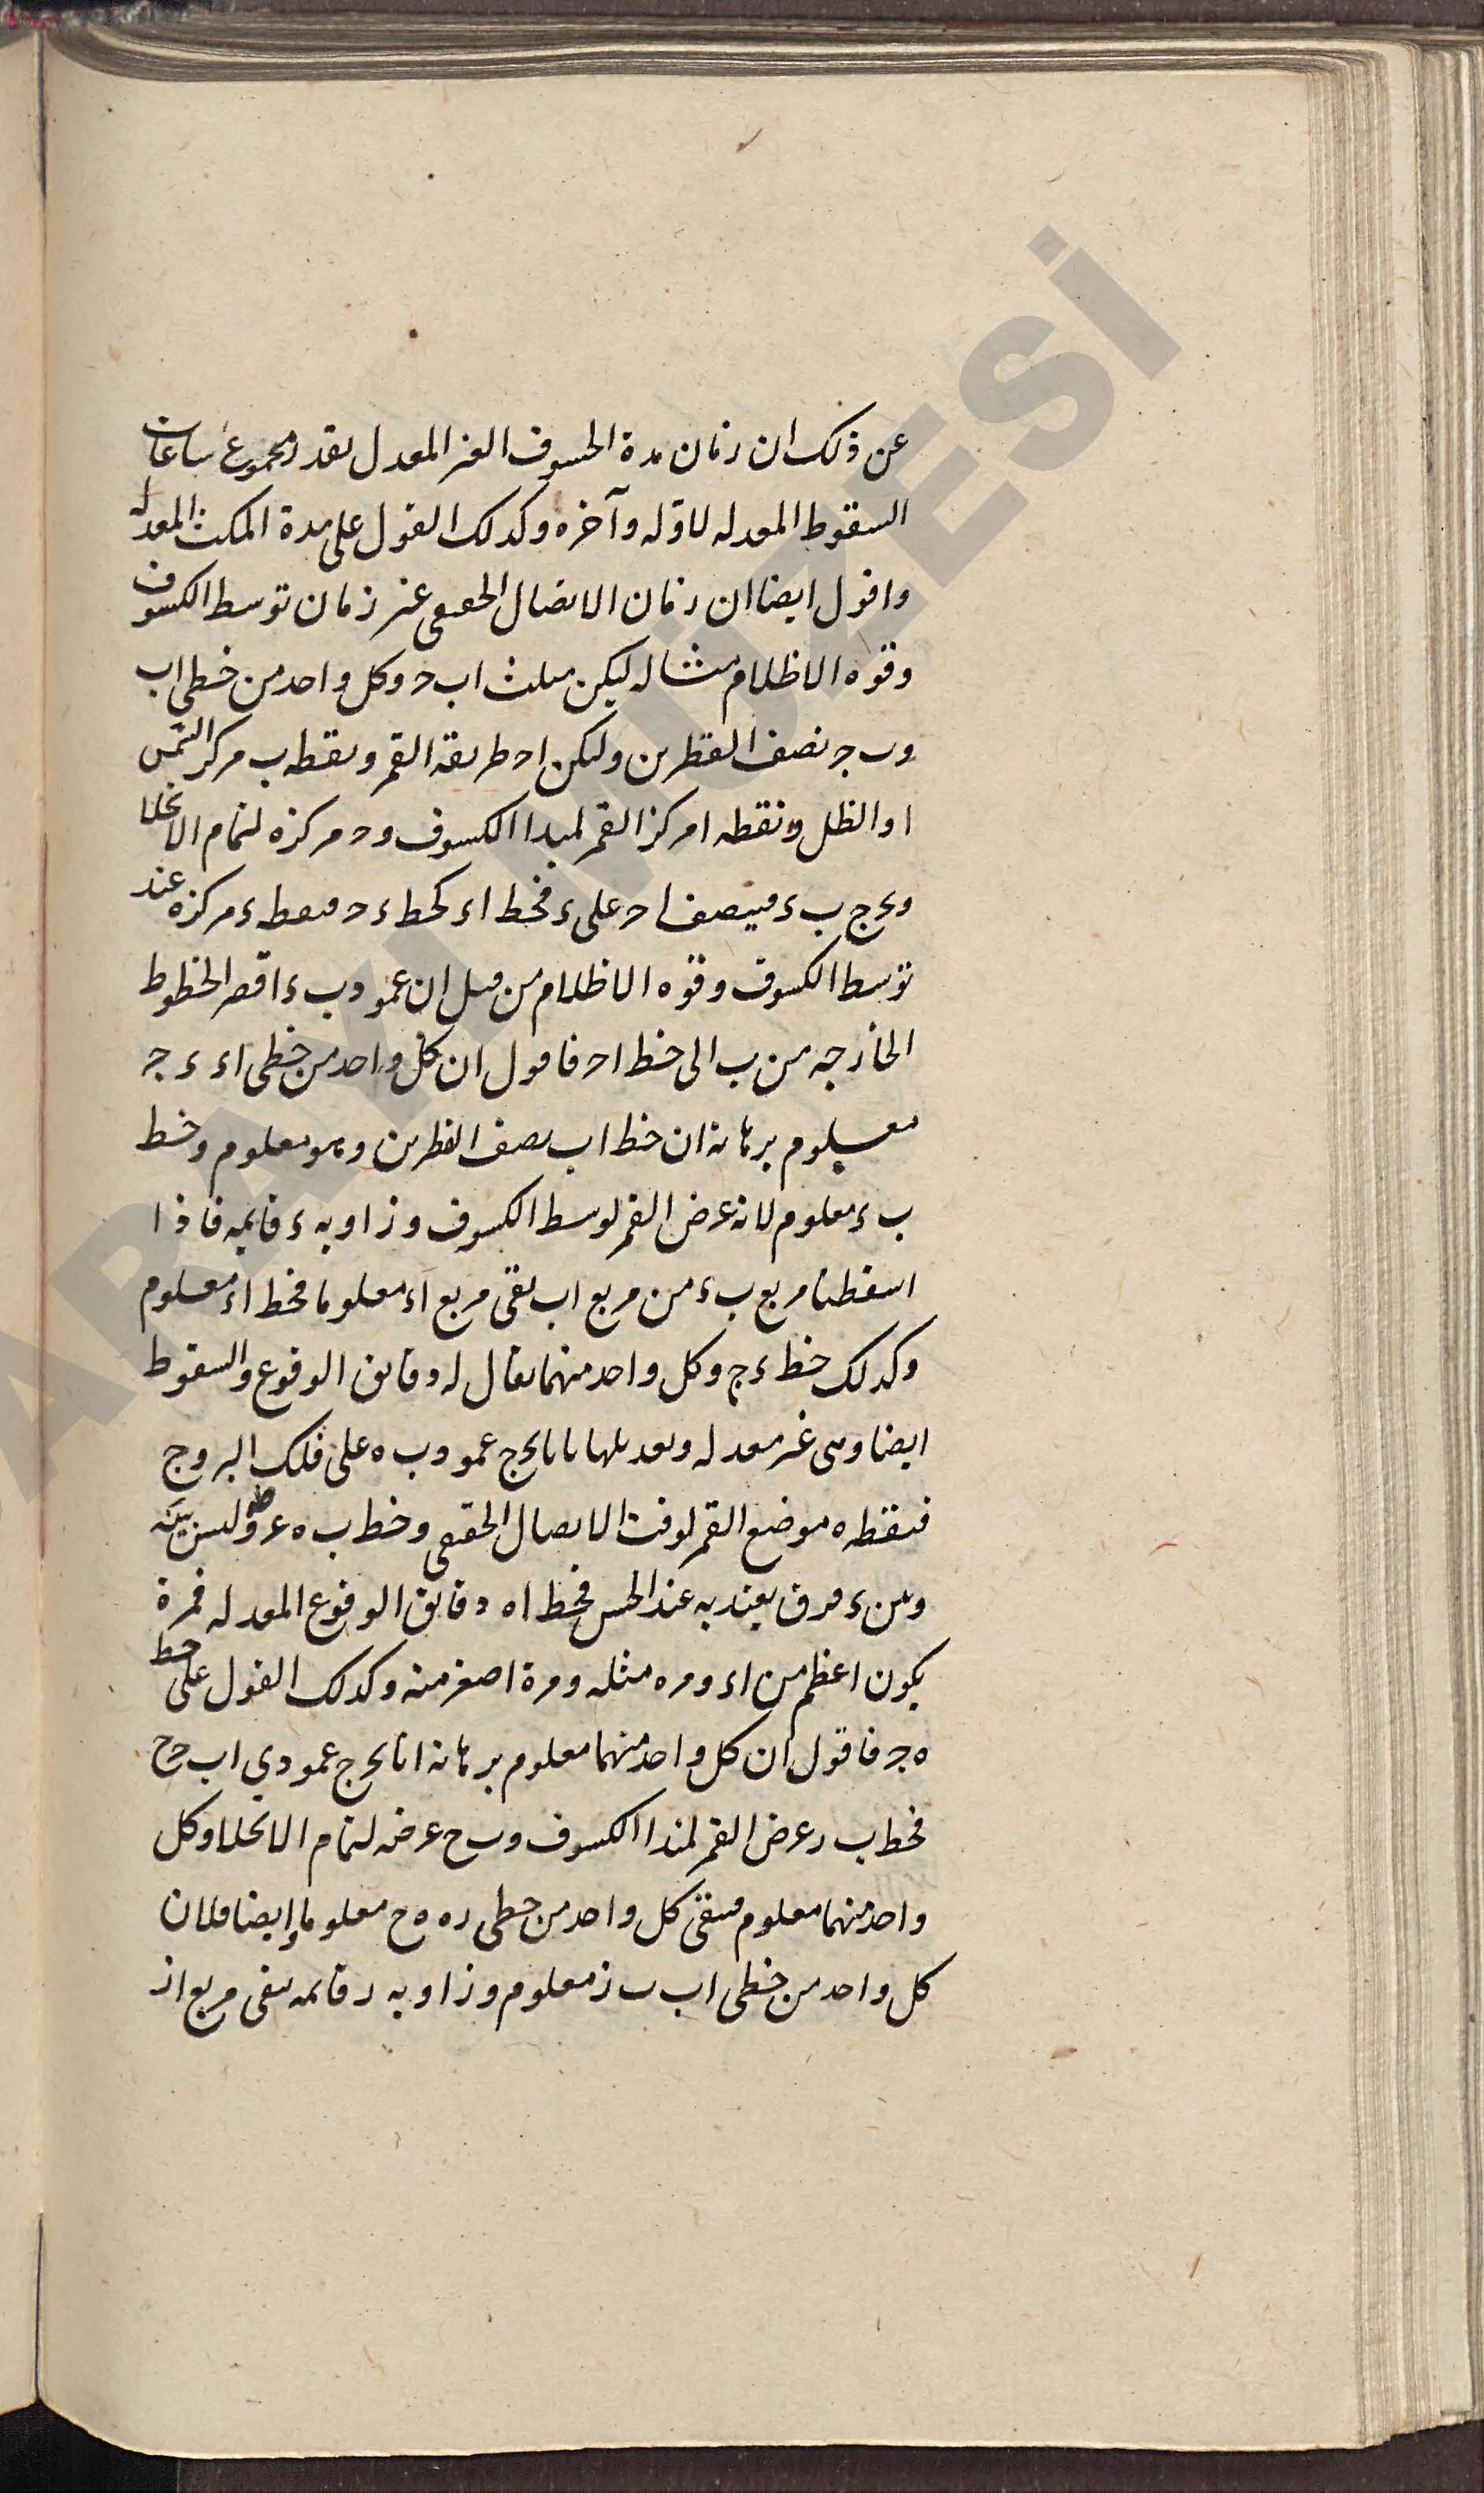 عن ذلك ان زمان مدة الخسوف الغير المعدل بقدر مجموع ساعات
السقوط المعدله لاوّله وآخره وكذلك القول على مدة المكث المعدله
واقول ايضا ان زمان الاتصال الحقيقى غير زمان توسط الكسوف
وقوه الاظلام مثاله ليكن مثلث اب ج وكل واحد من خطى اب
وب ج نصف القطرين وليكن اج طريقة القمر ونقطه ب مركز الشمس
او الظل ونقطه ا مركز القمر لمبدا الكسوف وج مركزه لتمام الانجلا
ويخرج ب ء فينصف اج على ء فخط اء كخط ء ج فنقطه ء مركزه عند
توسط الكسوف وقوه الاظلام من قبل ان عمود ب ء اقصر الخطوط
الخارجه من ب الى خط اج فاقول ان كل واحد من خطى اء ء ج
معلوم برهانه ان خط اب نصف القطرين وهو معلوم وخط
ب ء معلوم لانه عرض القمر لوسط الكسوف وزاويه ء قايمه فاذا
اسقطنا مربع ب ء من مربع اب بقى مربع اء معلوما فخط اء معلوم
وكذلك خط ء ج وكل واحد منهما يقال له دقايق الوقوع والسقوط
ايضا وهى غير معدله وتعديلها بانا نخرج عمود ب ه على فلك البروج
فنقطه ه موضع القمر لوقت الاتصال الحقيقى وخط ب ه عرضه وليس بينه
وبين ء فرق يعتد به عند الحس فخط اه دقايق الوقوع المعدله فمرة
يكون اعظم من اء ومره مثله ومرة اصغر منه وكذلك القول على خط
ه ج فاقول ان كل واحد منهما معلوم برهانه انا نخرج عمودي از ج ح
فخط ب ز عرض القمر لمبدا الكسوف وب ح عرضه لتمام الانجلا وكل
واحد منهما معلوم فبقى كل واحد من خطى ز ه ه ح معلوما وايضا فلان
كل واحد من خطى اب ب ز معلوم وزاويه ز قايمه يبقى مربع از